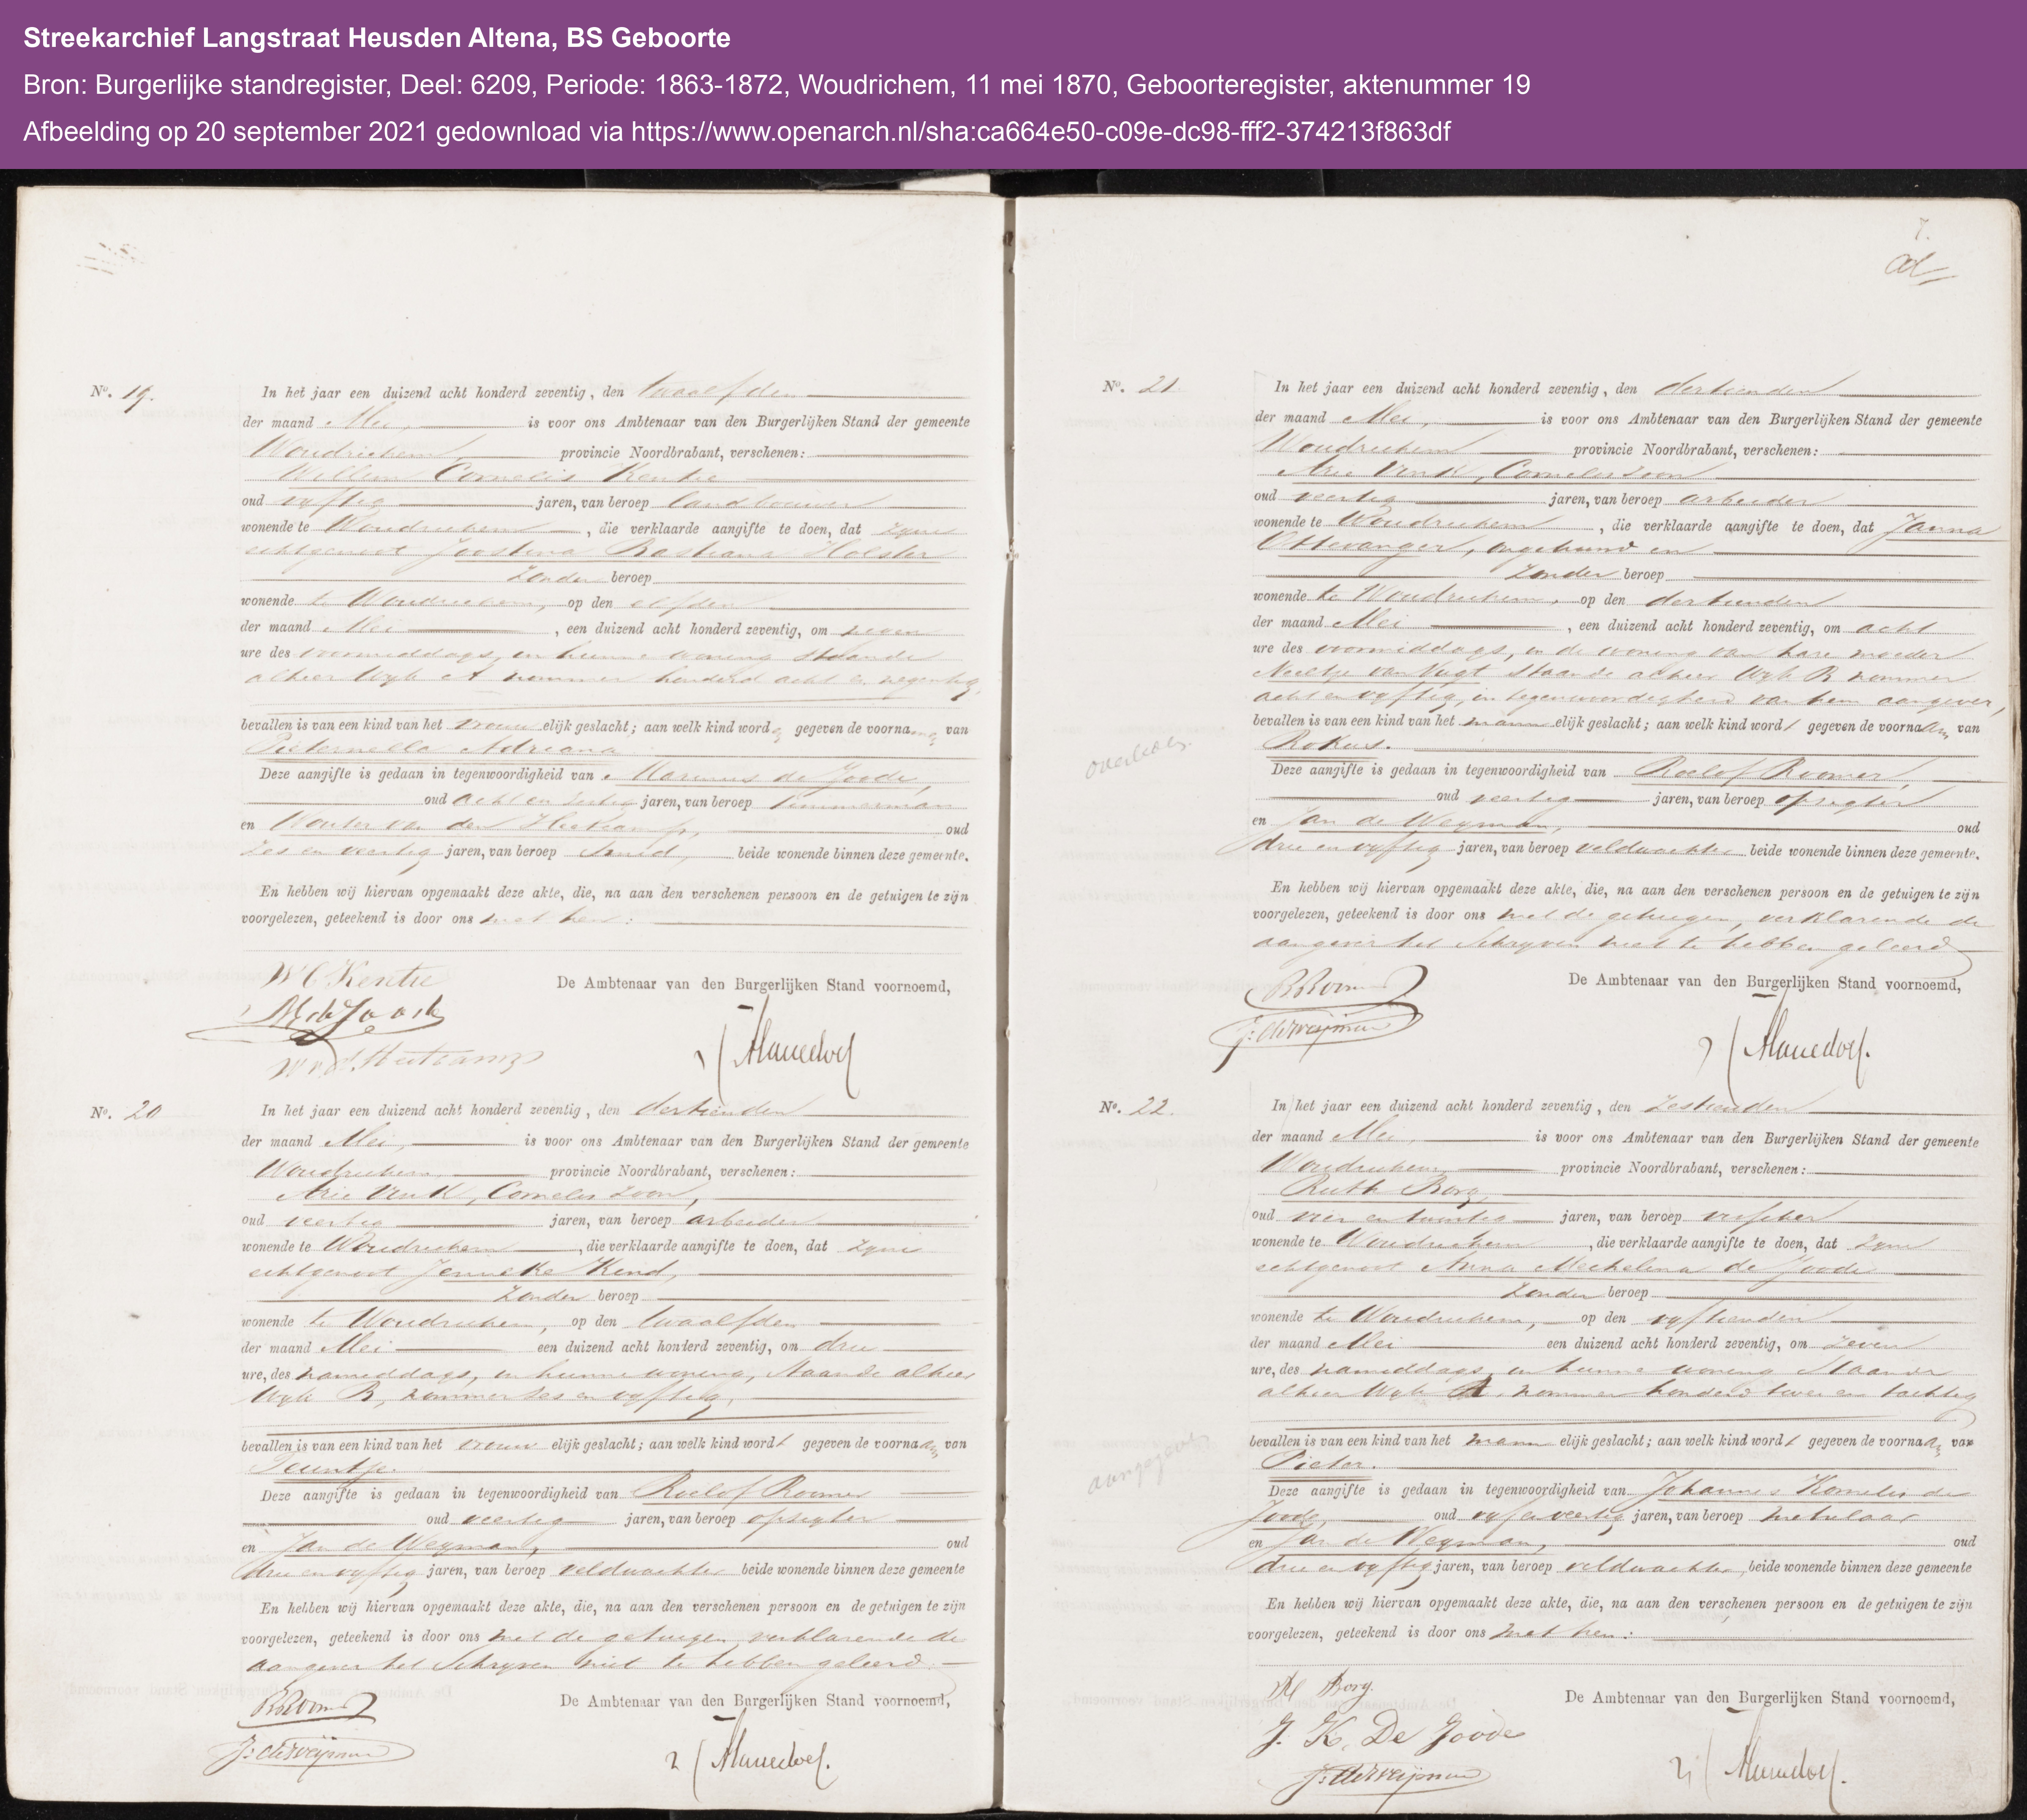 Streekarchief Langstraat Heusden Altena, BS Geboorte
Bron: Burgerlijke standregister, Deel: 6209, Periode: 1863-1872, Woudrichem, 11 mei 1870, Geboorteregister, aktenummer 19
Afbeelding op 20 september 2021 gedownload via https://www.openarch.nl/sha:ca664e50-c09e-dc98-fff2-374213f863df
No. 19.
In het jaar een duizend acht honderd zeventig, den twaalfden
der maand Mei, is voor ons Ambtenaar van den Burgerlijken Stand der gemeente
Woudrichem, provincie Noordbrabant, verschenen:
Willem Cornelis Kentie
oud vyftig jaren, van beroep landbouwer
wonende te Woudrichem, die verklaarde aangifte te doen, dat zyne
echtgenoot Joostina Bastiana Holster
zonder beroep
wonende te Woudrichem, op den elfden
der maand Mei, een duizend acht honderd zeventig, om negen
ure des voormiddags, in hunne woning staande
alhier Wyk A nummer honderd acht en negentig,
bevallen is van een kind van het vrouwelijk geslacht; aan welk kind word gegeven de voorna van
Pieternella Adriana
Deze aangifte is gedaan in tegenwoordigheid van Marinus de Joode,
oud acht en zestig jaren, van beroep timmerman
en Wouter van den Heetkamp, oud
zes en veertig jaren, van beroep Smid, beide wonende binnen deze gemeente.
En hebben wij hiervan opgemaakt deze akte, die, na aan den verschenen persoon en de getuigen te zijn
voorgelezen, geteekend is door ons met hen:
De Ambtenaar van den Burgerlijken Stand voornoemd,
W C Kentie
M de Joode
No. 20
In het jaar een duizend acht honderd zeventig, den dertienden
der maand Mei, is voor ons Ambtenaar van den Burgerlijken Stand der gemeente
Woudrichem, provincie Noordbrabant, verschenen:
Arie Vink, Cornelis zoon,
oud veertig jaren, van beroep arbeider
wonende te Woudrichem, die verklaarde aangifte te doen, dat zyne
echtgenoot Jenneke Kend,
zonder beroep
wonende te Woudrichem, op den twaalfden
der maand Mei een duizend acht honderd zeventig, om drie
ure, des namiddags, in hunne woning, staande alhier
Wyk B, nummer zes en vyftig,
bevallen is van een kind van het vrouwelijk geslacht; aan welk kind wordt gegeven de voornaam van
Teuntje.
Deze aangifte is gedaan in tegenwoordigheid van Roelof Roomer
oud veertig jaren, van beroep opzigter
en Jan de Weyman, oud
drie en vyftig jaren, van beroep veldwachter beide wonende binnen deze gemeente
En hebben wij hiervan opgemaakt deze akte, die, na aan den verschenen persoon en de getuigen te zijn
voorgelezen, geteekend is door ons met de getuigen, verklarende de
aangever het Schryven niet te hebben geleerd.
De Ambtenaar van den Burgerlijken Stand voornoemd,
R Roomer
J: de Weijman
7.
No. 21.
In het jaar een duizend acht honderd zeventig, den dertienden
der maand Mei, is voor ons Ambtenaar van den Burgerlijken Stand der gemeente
Woudrichem provincie Noordbrabant, verschenen:
Arie Vink, Cornelis zoon
oud veertig jaren, van beroep arbeider
wonende te Woudrichem, die verklaarde aangifte te doen, dat Janna
Ottevanger, ongehuwd en
zonder beroep
wonende te Woudrichem, op den dertienden
der maand Mei, een duizend acht honderd zeventig, om acht
ure des voormiddags, in de woning van hare moeder
Neeltje van Vugt staande alhier Wyk B nummer
acht en vyftig, in tegenwoordigheid van hem aangever,
bevallen is van een kind van het mannelijk geslacht; aan welk kind wordt gegeven de voornaam van
Rokus.
overleden
Deze aangifte is gedaan in tegenwoordigheid van Roelof Roomer,
oud veertig jaren, van beroep opzigter
en Jan de Weyman, oud
drie en vyftig jaren, van beroep veldwachter beide wonende binnen deze gemeente.
En hebben wij hiervan opgemaakt deze akte, die, na aan den verschenen persoon en de getuigen te zijn
voorgelezen, geteekend is door ons met de getuigen, verklarende de
aangever het Schryven niet te hebben geleerd
De Ambtenaar van den Burgerlijken Stand voornoemd,
R Roomer
J: de Weijman
No. 22.
In het jaar een duizend acht honderd zeventig, den zestienden
der maand Mei, is voor ons Ambtenaar van den Burgerlijken Stand der gemeente
Woudrichem, provincie Noordbrabant, verschenen:
Ruth Borg,
oud vier en twintig jaren, van beroep visscher
wonende te Woudrichem, die verklaarde aangifte te doen, dat zyne
echtgenoot Anna Mechelina de Joode
zonder beroep
wonende te Woudrichem, op den vyftienden
der maand Mei een duizend acht honderd zeventig, om zeven
ure, des namiddags, in hunne woning staande
alhier Wyk A, nummer honderd twee en tachtig
bevallen is van een kind van het mannelijk geslacht; aan welk kind wordt gegeven de voornaam van
Pieter.
aangegeven
Deze aangifte is gedaan in tegenwoordigheid van Johannes Kornelis de
Joode, oud vyf en veertig jaren, van beroep metselaar
en Jan de Weyman, oud
drie en vyftig jaren, van beroep veldwachter, beide wonende binnen deze gemeente
En hebben wij hiervan opgemaakt deze akte, die, na aan den verschenen persoon en de getuigen te zijn
voorgelezen, geteekend is door ons met hen:
De Ambtenaar van den Burgerlijken Stand voornoemd,
R Borg
J. K. De Joode
J: de Weijman